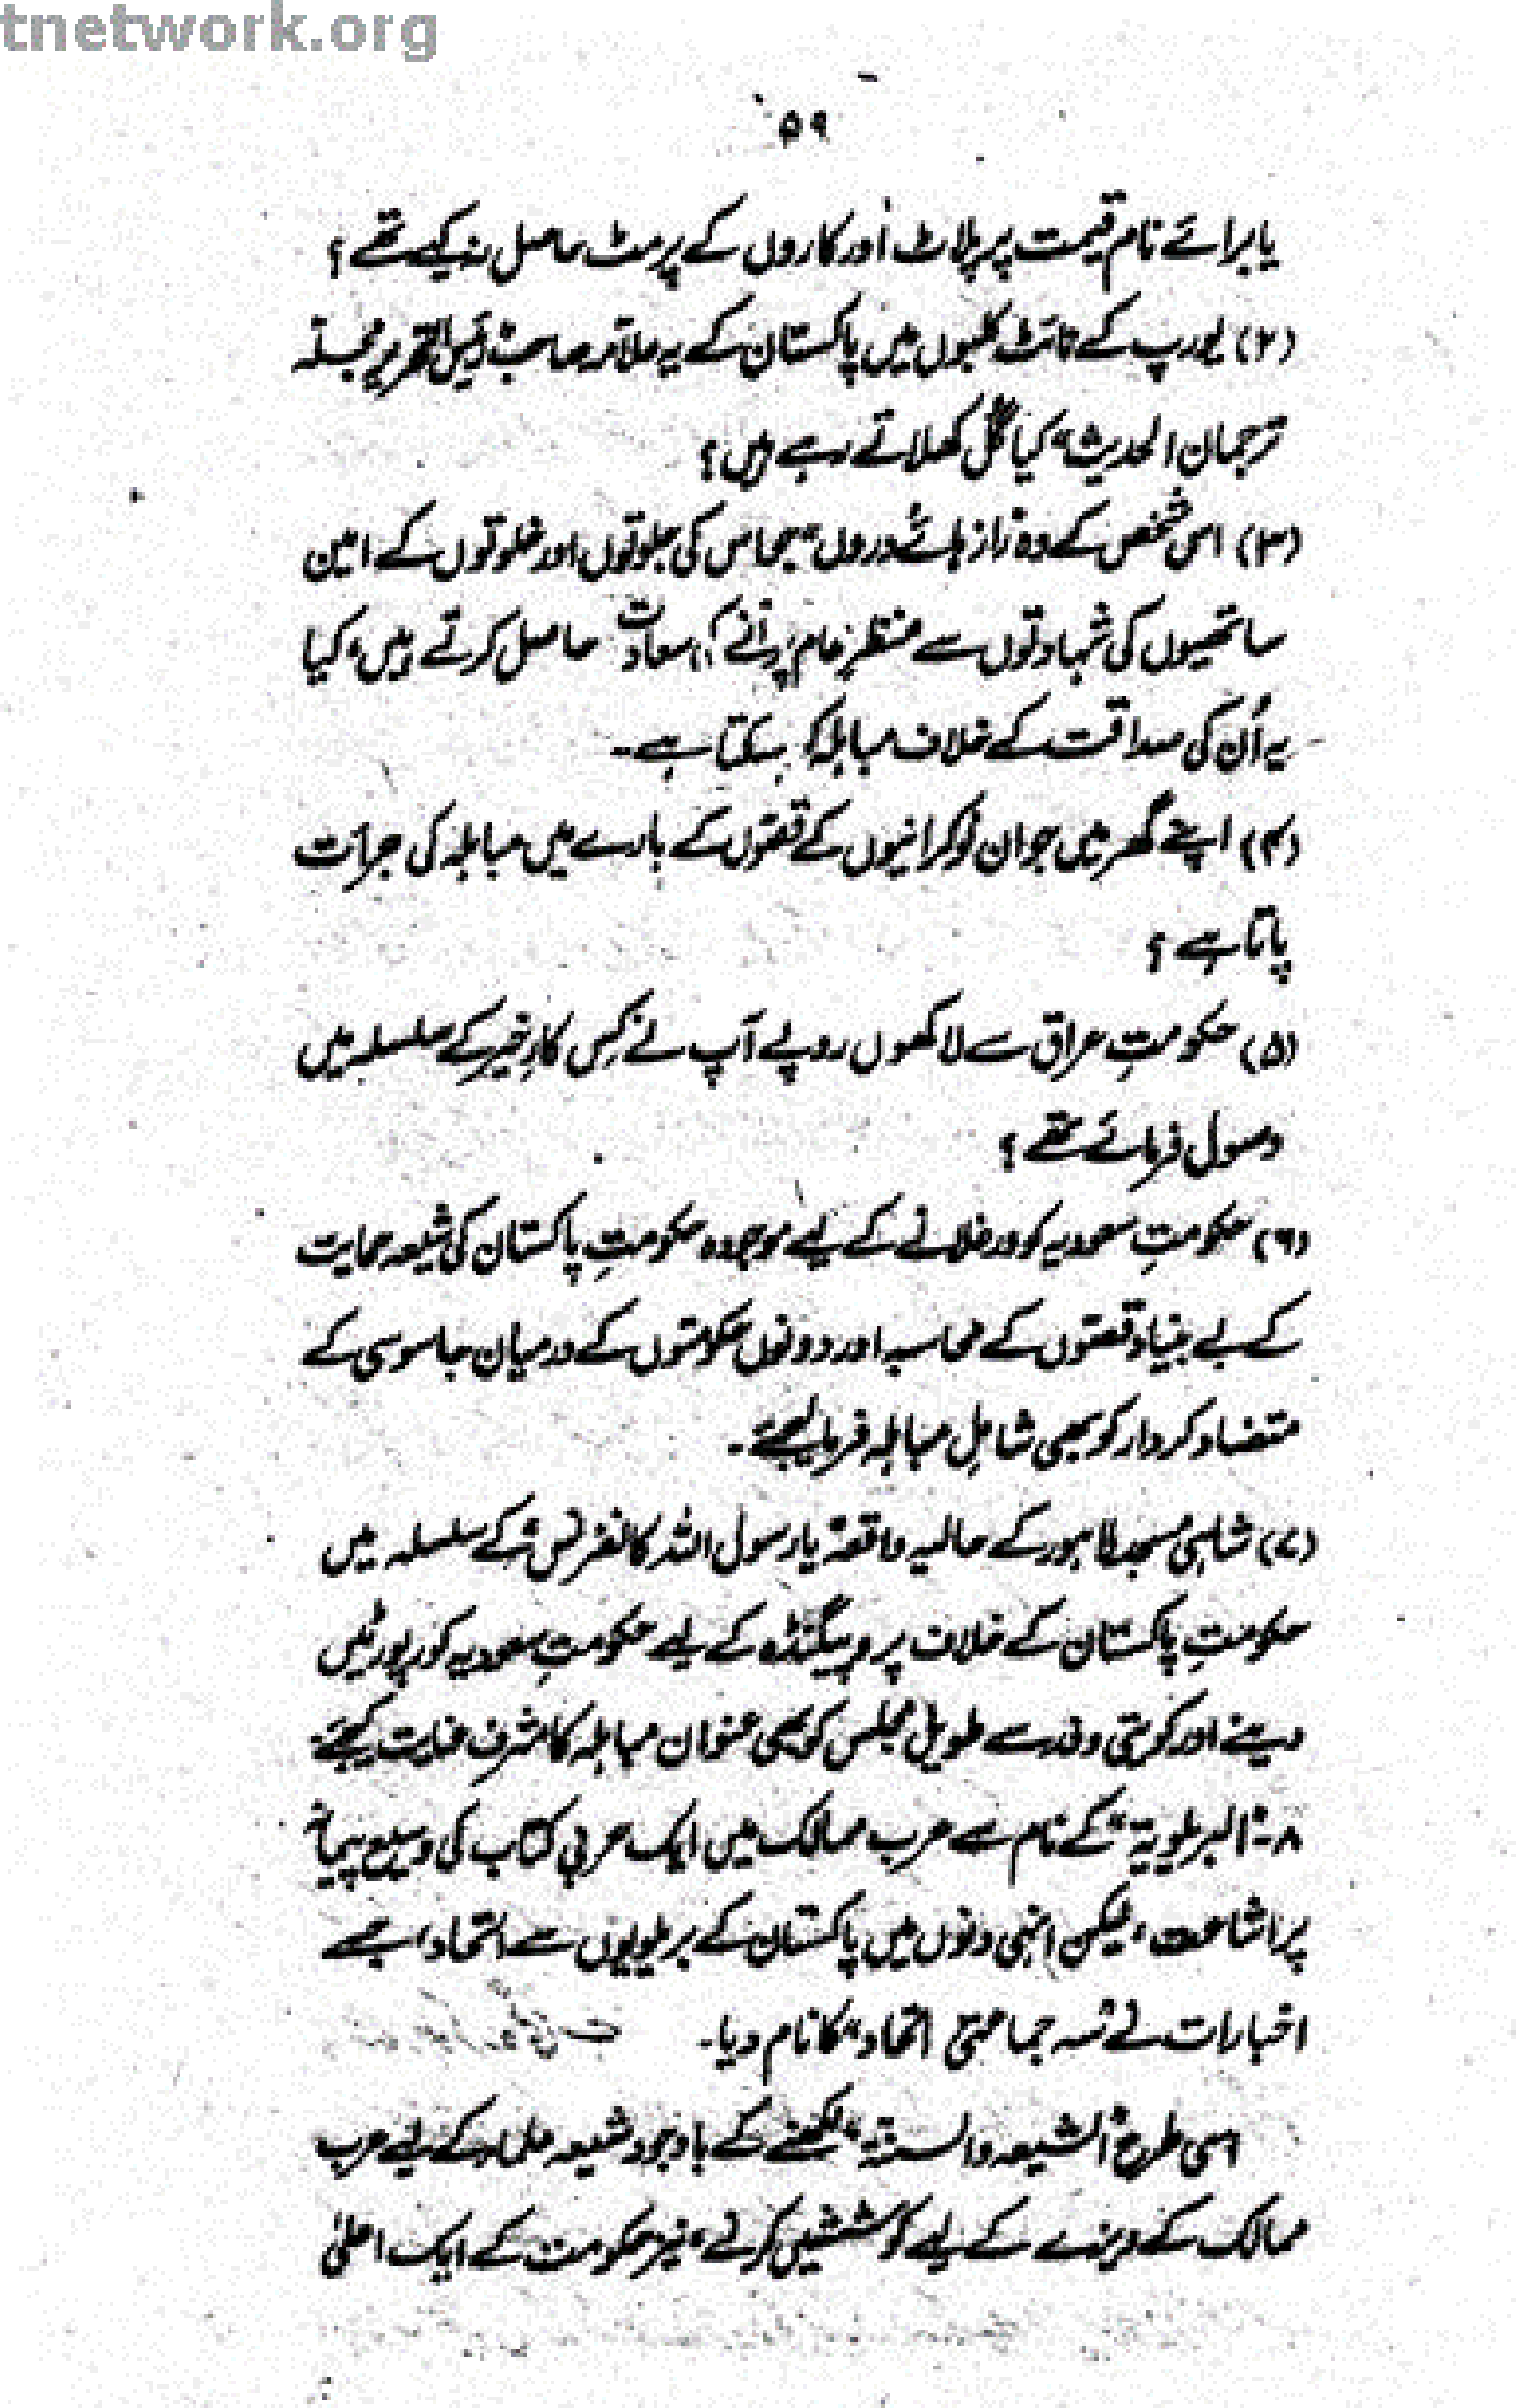 tnetwork.org
۵۹
یا برائے نام قیمت پر پلاٹ اور کاروں کے پرمٹ حاصل نہ کیے تھے؟
(۲) یورپ کے نائٹ کلبوں میں پاکستان کے یہ علامہ صاحب رئیس التحریر مجلہ
ترجمان الحدیث" کیا گل کھلاتے رہے ہیں؟
(۳) اسی شخص کے وہ "راز ہائے دروں" جو اس کی جلوتوں اور خلوتوں کے امین
ساتھیوں کی شہادتوں سے منظرِ عام پر آنے کی سعادت حاصل کرتے رہیں، کیا
یہ اُن کی صداقت کے خلاف مباہلہ کر سکتا ہے۔
(۴) اپنے گھر میں جوان نوکرانیوں کے قصّوں کے بارے میں مباہلہ کی جرأت
پاتا ہے؟
(۵) حکومتِ عراق سے لاکھوں روپے آپ نے کِس کارِ خیر کے سلسلہ میں
وصول فرمائے تھے؟
(۶) حکومتِ سعودیہ کو ورغلانے کے لیے موجودہ حکومتِ پاکستان کی شیعہ حمایت
کے بے بنیاد قصّوں کے محاسبہ اور دونوں حکومتوں کے درمیان جاسوسی کے
متضاد کردار کو بھی شاملِ مباہلہ فرما لیجئے۔
(۷) شاہی مسجد لاہور کے حالیہ واقعہ "یا رسول اللہ کانفرنس" کے سلسلہ میں
حکومتِ پاکستان کے خلاف پروپیگنڈہ کے لیے حکومتِ سعودیہ کو رپورٹیں
دینے اور کویتی وفد سے طویل مجلس کو بھی عنوان مباہلہ کا شرف عنایت کیجئے۔
۸۔ "البریلویۃ" کے نام سے عرب ممالک میں ایک عربی کتاب کی وسیع پیمانہ
پر اشاعت، لیکن انہی دنوں میں پاکستان کے بریلویوں سے اتحاد، جسے
اخبارات نے "سہ جماعتی اتحاد" کا نام دیا۔
اسی طرح "الشیعہ والسنۃ" لکھنے کے باوجود شیعہ علماء کے لیے عرب
ممالک کے ویزے کے لیے کوششیں کرنے، نیز حکومت کے ایک اعلیٰ